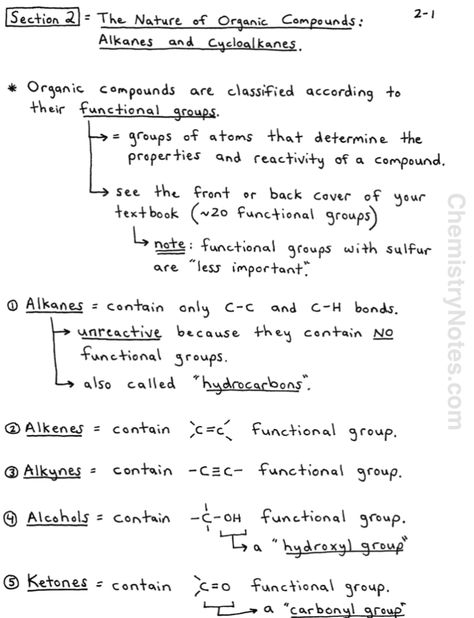 2-1
Section 2 = The Nature of Organic Compounds:
Alkanes and Cycloalkanes.
* Organic compounds are classified according to
their functional groups.
↳ = groups of atoms that determine the
properties and reactivity of a compound.
↳ see the front or back cover of your
textbook (~20 functional groups)
↳ note: functional groups with sulfur
are "less important".
① Alkanes = contain only C-C and C-H bonds.
↳ unreactive because they contain NO
functional groups.
↳ also called "hydrocarbons".
② Alkenes = contain >C=C< functional group.
③ Alkynes = contain -C≡C- functional group.
④ Alcohols = contain -C-OH functional group.
↳ a "hydroxyl group"
⑤ Ketones = contain >C=O functional group.
↳ a "carbonyl group"
ChemistryNotes.com